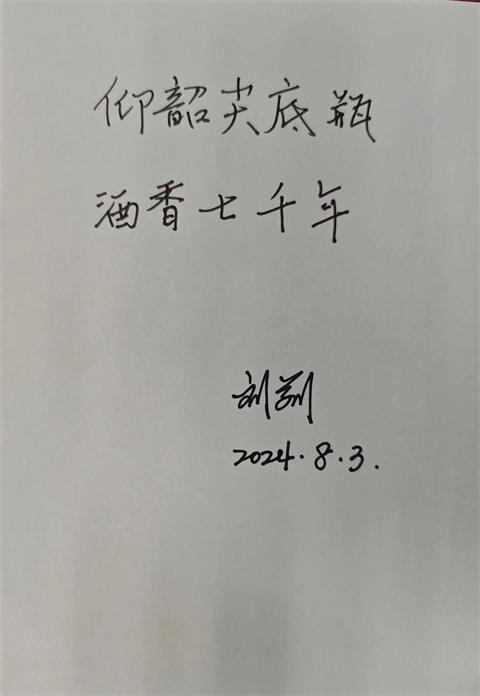 仰韶尖底瓶
酒香七千年
刘
2024.8.3.